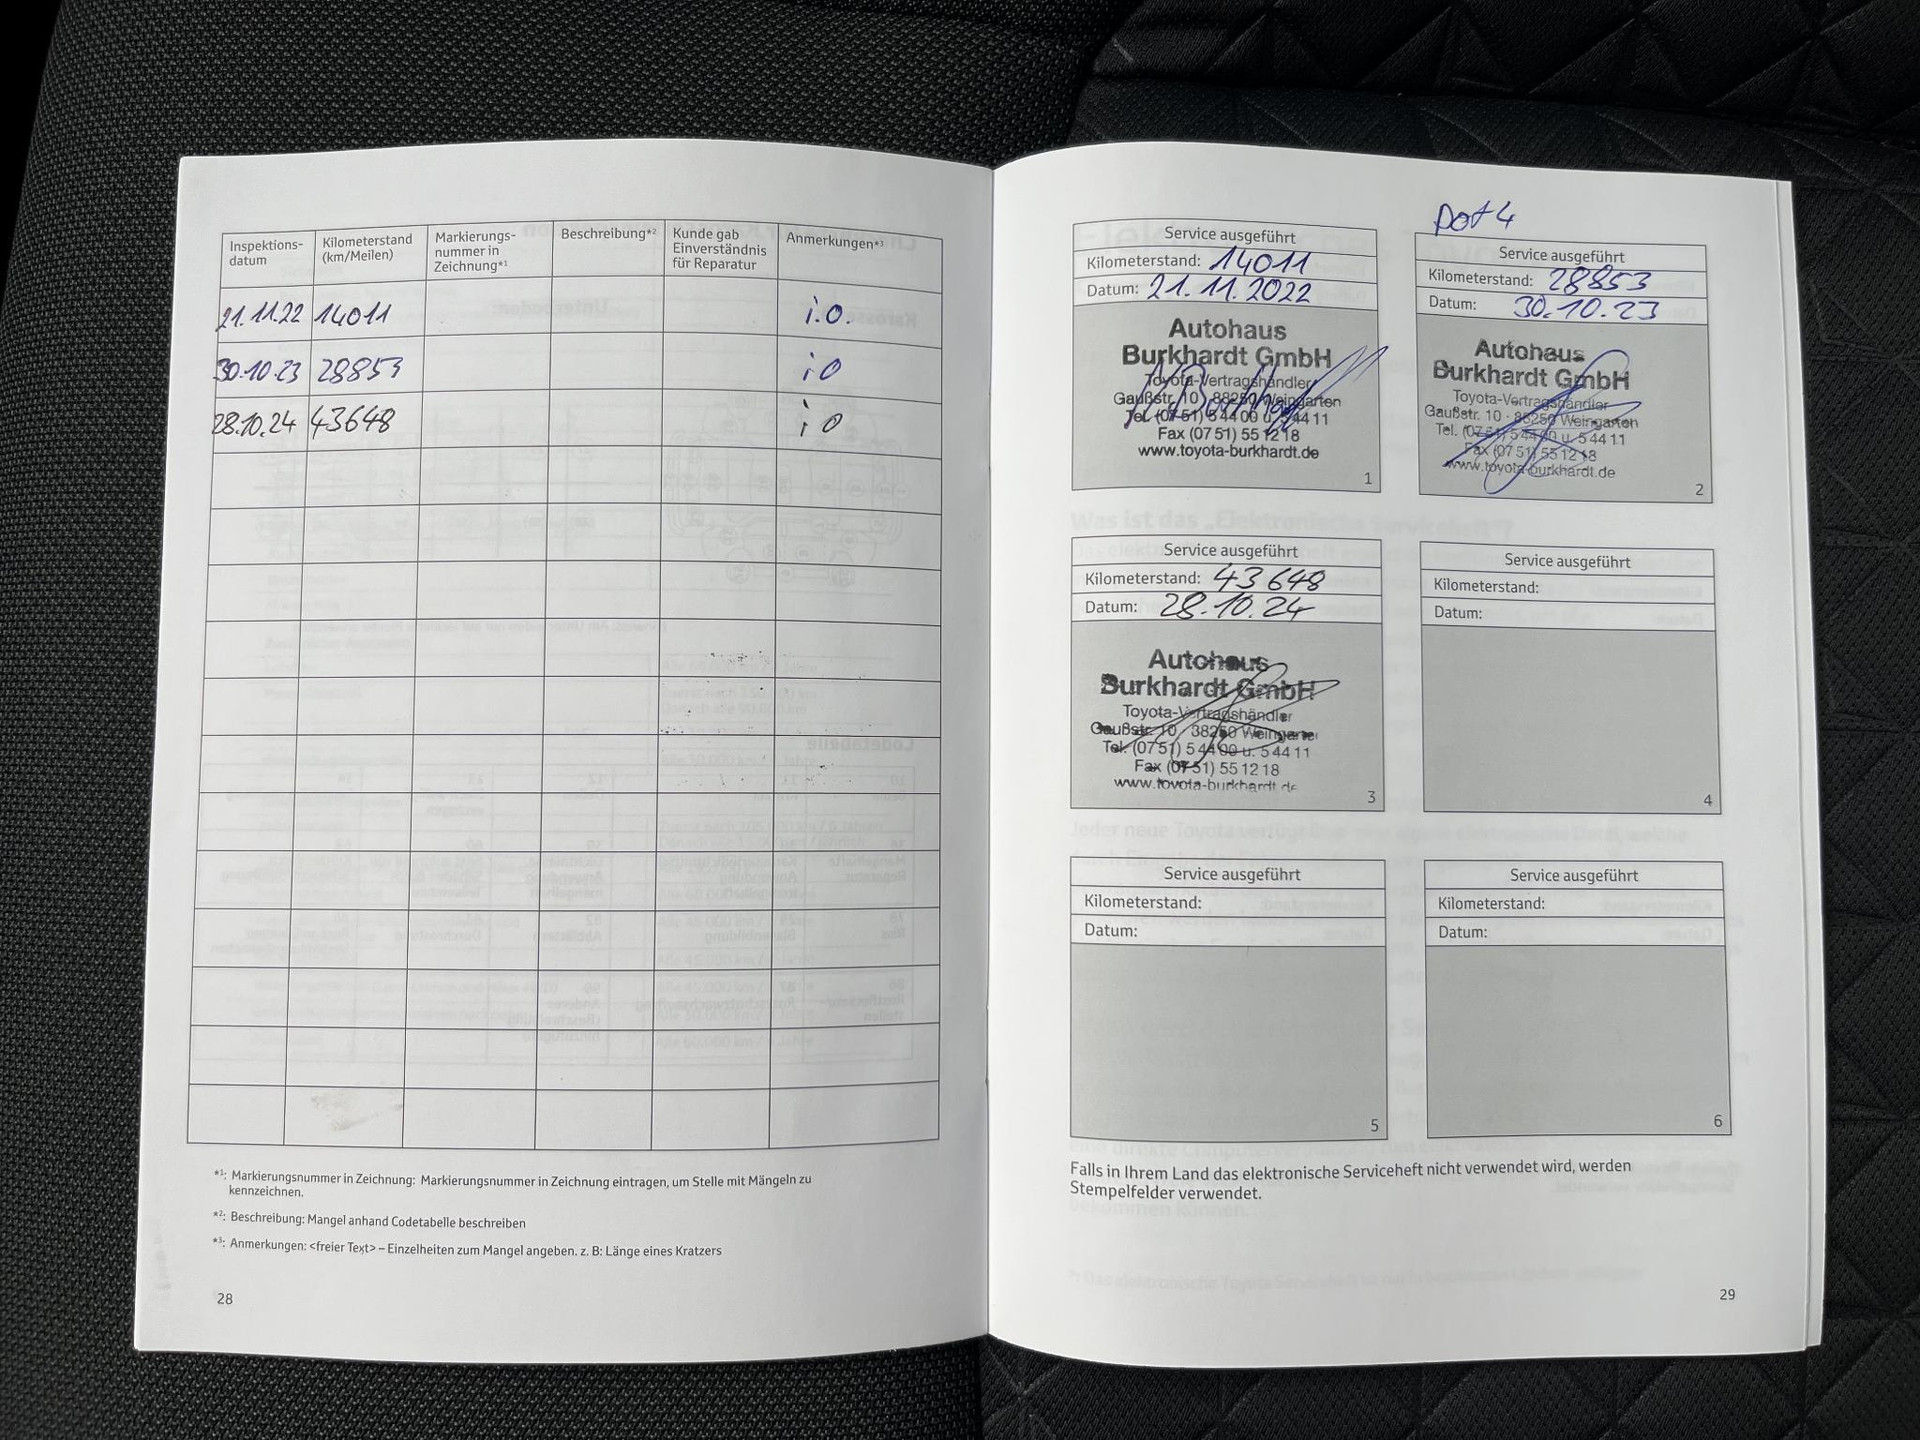 Inspektions-
datum
Kilometerstand
(km/Meilen)
Markierungs-
nummer in
Zeichnung*1
Beschreibung*2
Kunde gab
Einverständnis
für Reparatur
Anmerkungen*3
21.11.22 14011 i.O.
30.10.23 28853 i O
28.10.24 43648 i O
*1: Markierungsnummer in Zeichnung: Markierungsnummer in Zeichnung eintragen, um Stelle mit Mängeln zu
kennzeichnen.
*2: Beschreibung: Mangel anhand Codetabelle beschreiben
*3: Anmerkungen: <freier Text> – Einzelheiten zum Mangel angeben. z. B: Länge eines Kratzers
28
Service ausgeführt
Kilometerstand: 14011
Datum: 21.11.2022
Autohaus
Burkhardt GmbH
Toyota-Vertragshändler
Gaußstr. 10 · 88250 Weingarten
Tel. (07 51) 5 44 00 u. 5 44 11
Fax (07 51) 55 12 18
www.toyota-burkhardt.de
1
Dot 4
Service ausgeführt
Kilometerstand: 28853
Datum: 30.10.23
Autohaus
Burkhardt GmbH
Toyota-Vertragshändler
Gaußstr. 10 · 88250 Weingarten
Tel. (07 51) 5 44 00 u. 5 44 11
Fax (07 51) 55 12 18
www.toyota-burkhardt.de
2
Service ausgeführt
Kilometerstand: 43648
Datum: 28.10.24
Autohaus
Burkhardt GmbH
Toyota-Vertragshändler
Gaußstr. 10 · 88250 Weingarten
Tel. (07 51) 5 44 00 u. 5 44 11
Fax (07 51) 55 12 18
www.toyota-burkhardt.de
3
Service ausgeführt
Kilometerstand:
Datum:
4
Service ausgeführt
Kilometerstand:
Datum:
5
Service ausgeführt
Kilometerstand:
Datum:
6
Falls in Ihrem Land das elektronische Serviceheft nicht verwendet wird, werden
Stempelfelder verwendet.
29